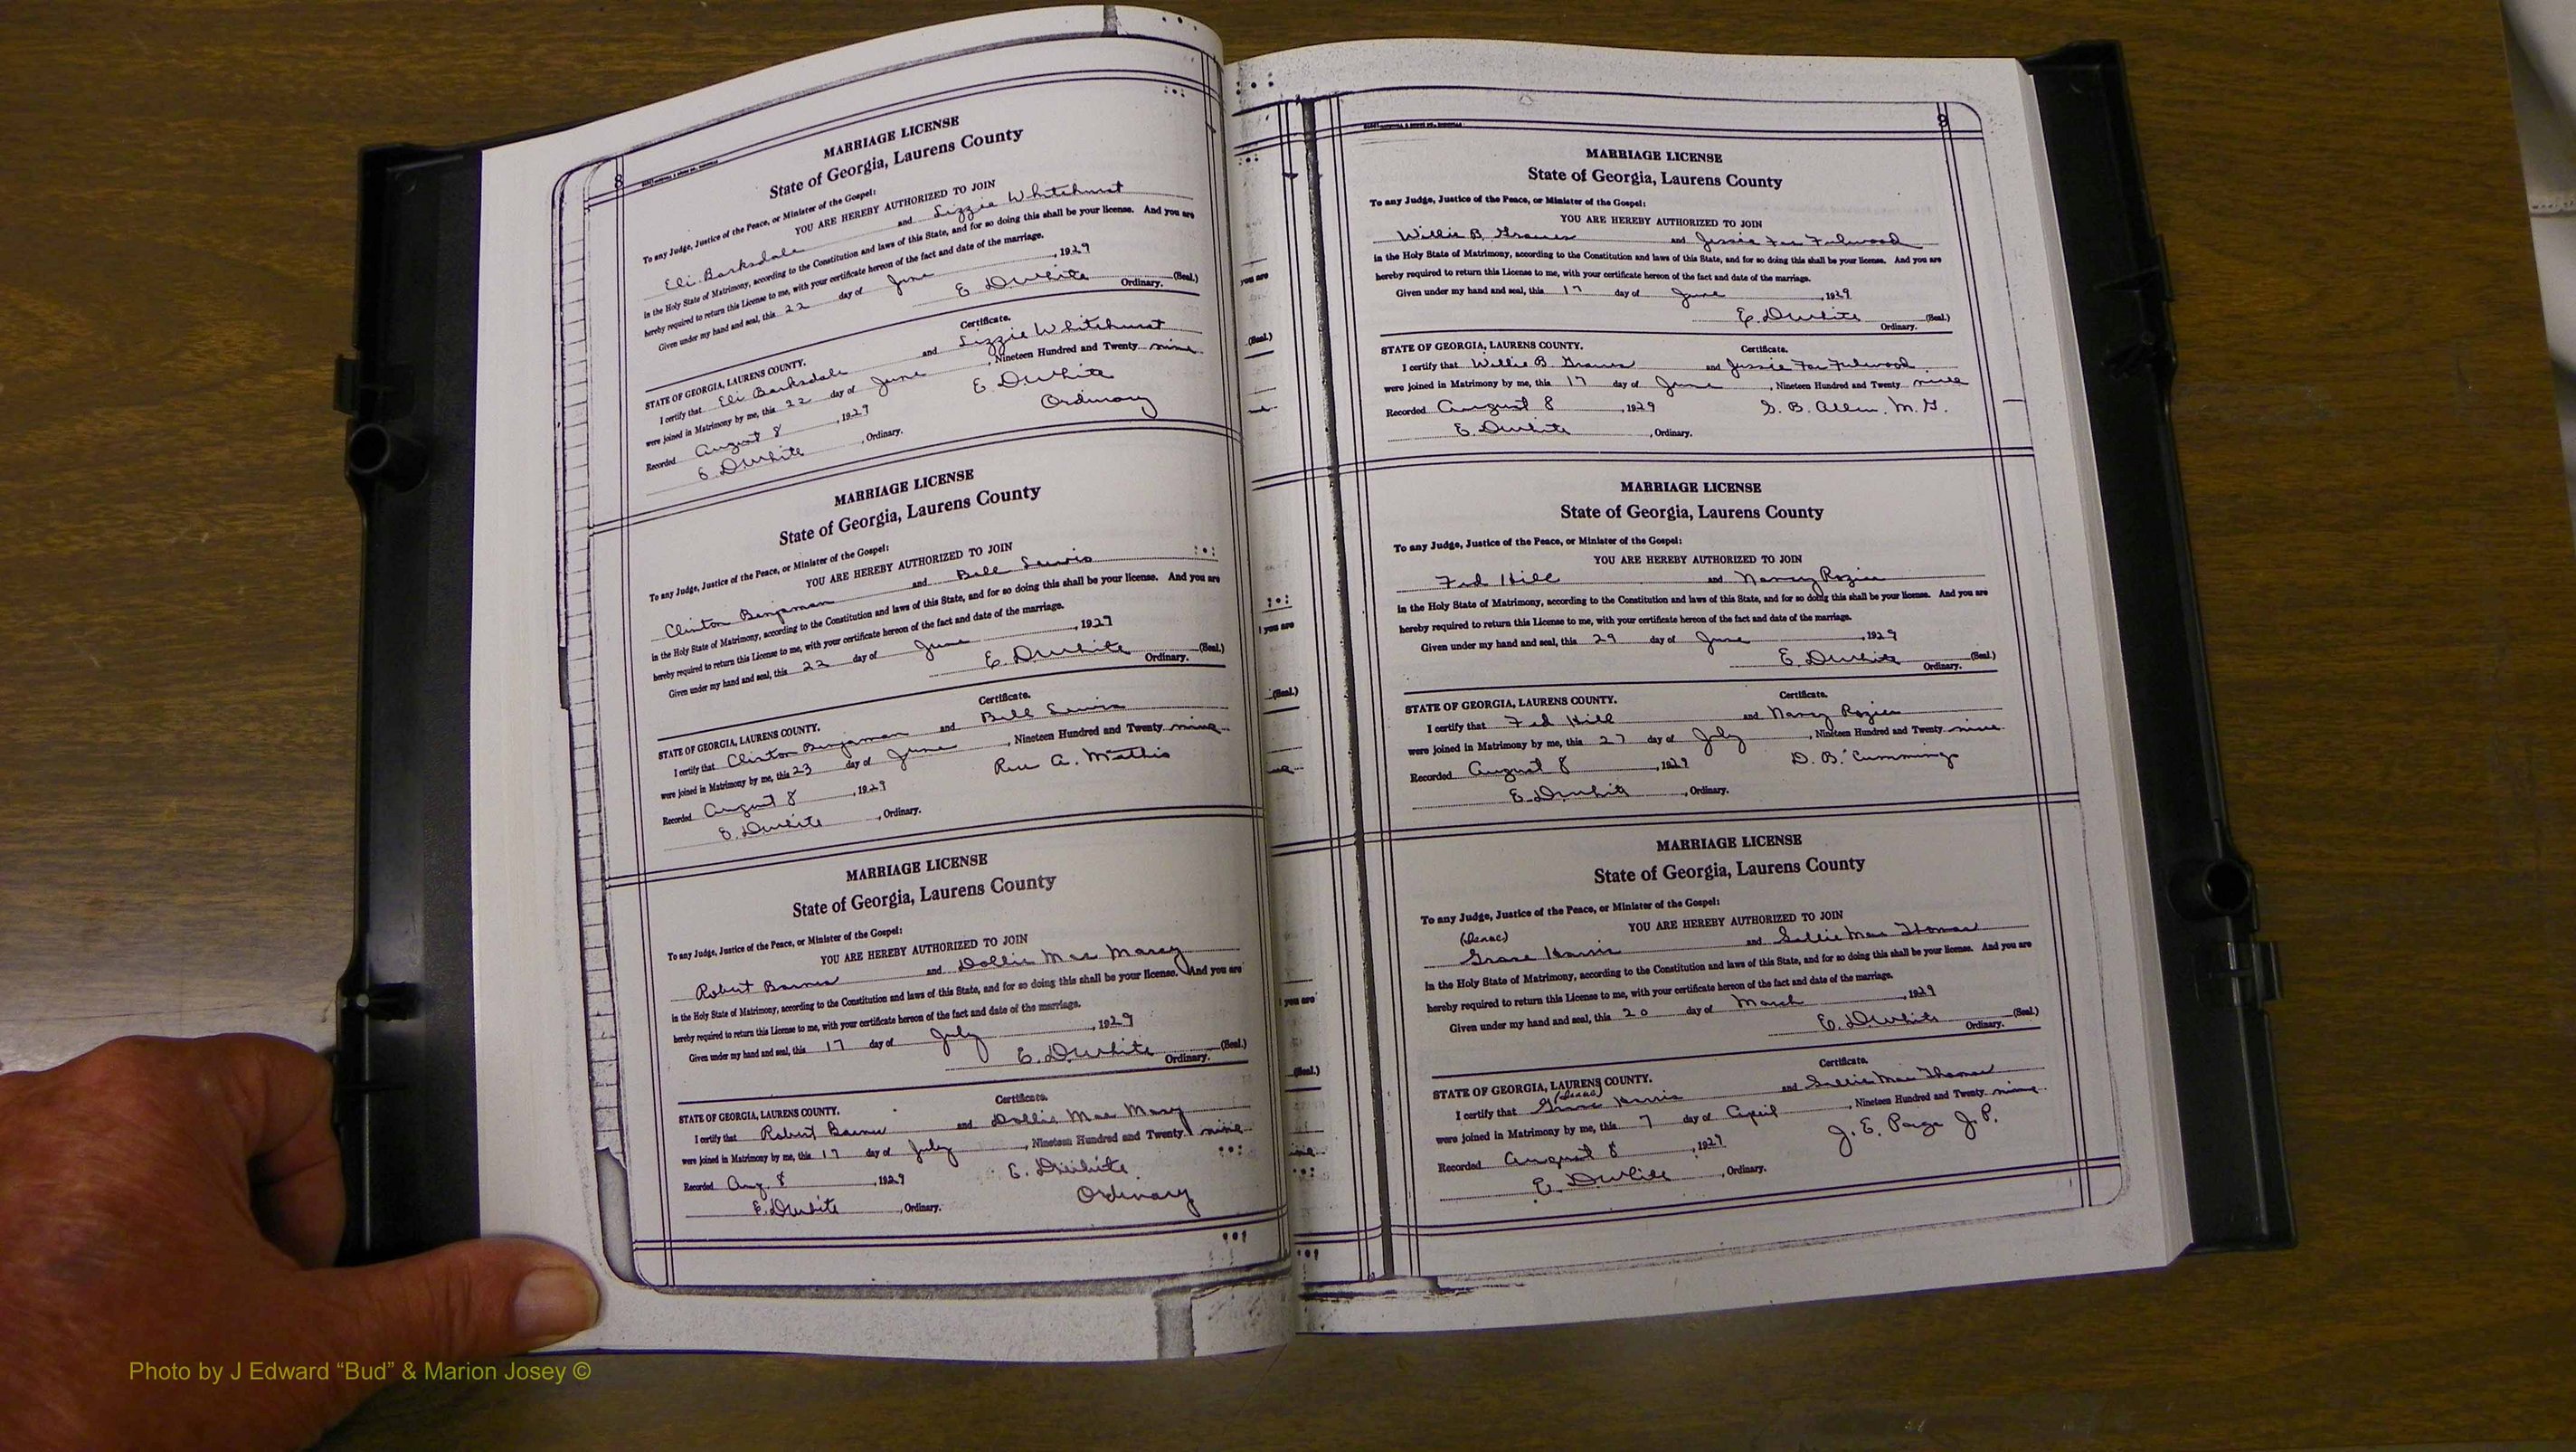 8
MARRIAGE LICENSE
State of Georgia, Laurens County
To any Judge, Justice of the Peace, or Minister of the Gospel:
YOU ARE HEREBY AUTHORIZED TO JOIN
Eli Barksdale and Lizzie Whitehurst
in the Holy State of Matrimony, according to the Constitution and laws of this State, and for so doing this shall be your license. And you are
hereby required to return this License to me, with your certificate hereon of the fact and date of the marriage.
Given under my hand and seal, this 22 day of June, 1929
E. D White (Seal.)
Ordinary.
Certificate.
STATE OF GEORGIA, LAURENS COUNTY.
I certify that Eli Barksdale and Lizzie Whitehurst
were joined in Matrimony by me, this 22 day of June, Nineteen Hundred and Twenty nine
Recorded August 8, 1929 E. D White
E. D White, Ordinary. Ordinary
MARRIAGE LICENSE
State of Georgia, Laurens County
To any Judge, Justice of the Peace, or Minister of the Gospel:
YOU ARE HEREBY AUTHORIZED TO JOIN
Clinton Benjaman and Bell Lewis
in the Holy State of Matrimony, according to the Constitution and laws of this State, and for so doing this shall be your license. And you are
hereby required to return this License to me, with your certificate hereon of the fact and date of the marriage.
Given under my hand and seal, this 22 day of June, 1929
E. D White (Seal.)
Ordinary.
Certificate.
STATE OF GEORGIA, LAURENS COUNTY.
I certify that Clinton Benjaman and Bell Lewis
were joined in Matrimony by me, this 23 day of June, Nineteen Hundred and Twenty nine
Recorded August 8, 1929 Rev A. Mathis
E. D White, Ordinary.
MARRIAGE LICENSE
State of Georgia, Laurens County
To any Judge, Justice of the Peace, or Minister of the Gospel:
YOU ARE HEREBY AUTHORIZED TO JOIN
Robert Barnes and Dollie Mae Marcy
in the Holy State of Matrimony, according to the Constitution and laws of this State, and for so doing this shall be your license. And you are
hereby required to return this License to me, with your certificate hereon of the fact and date of the marriage.
Given under my hand and seal, this 17 day of July, 1929
E. D White (Seal.)
Ordinary.
Certificate.
STATE OF GEORGIA, LAURENS COUNTY.
I certify that Robert Barnes and Dollie Mae
were joined in Matrimony by me, this 17 day of July, Nineteen Hundred and Twenty nine
Recorded Aug. 8, 1929 E. D White
E. D White, Ordinary. Ordinary
9
MARRIAGE LICENSE
State of Georgia, Laurens County
To any Judge, Justice of the Peace, or Minister of the Gospel:
YOU ARE HEREBY AUTHORIZED TO JOIN
Willie B. Graves and Jessie Fae Fulwood
in the Holy State of Matrimony, according to the Constitution and laws of this State, and for so doing this shall be your license. And you are
hereby required to return this License to me, with your certificate hereon of the fact and date of the marriage.
Given under my hand and seal, this 17 day of June, 1929
E. D White (Seal.)
Ordinary.
Certificate.
STATE OF GEORGIA, LAURENS COUNTY.
I certify that Willie B. Graves and Jessie Fae Fulwood
were joined in Matrimony by me, this 17 day of June, Nineteen Hundred and Twenty nine
Recorded August 8, 1929 S. B. Allen, M. G.
E. D White, Ordinary.
MARRIAGE LICENSE
State of Georgia, Laurens County
To any Judge, Justice of the Peace, or Minister of the Gospel:
YOU ARE HEREBY AUTHORIZED TO JOIN
Fed Hill and Nancy Rozier
in the Holy State of Matrimony, according to the Constitution and laws of this State, and for so doing this shall be your license. And you are
hereby required to return this License to me, with your certificate hereon of the fact and date of the marriage.
Given under my hand and seal, this 29 day of June, 1929
E. D White (Seal.)
Ordinary.
Certificate.
STATE OF GEORGIA, LAURENS COUNTY.
I certify that Fed Hill and Nancy Rozier
were joined in Matrimony by me, this 27 day of July, Nineteen Hundred and Twenty nine
Recorded August 8, 1929 D. B. Cummings
E. D White, Ordinary.
MARRIAGE LICENSE
State of Georgia, Laurens County
To any Judge, Justice of the Peace, or Minister of the Gospel:
YOU ARE HEREBY AUTHORIZED TO JOIN
Harris and Sallie Mae Thomas
in the Holy State of Matrimony, according to the Constitution and laws of this State, and for so doing this shall be your license. And you are
hereby required to return this License to me, with your certificate hereon of the fact and date of the marriage.
Given under my hand and seal, this 20 day of March, 1929
E. D White (Seal.)
Ordinary.
Certificate.
STATE OF GEORGIA, LAURENS COUNTY.
I certify that Harris and Sallie Mae Thomas
were joined in Matrimony by me, this 7 day of April, Nineteen Hundred and Twenty nine
Recorded August 8, 1929 J. E. Page J. P.
E. D White, Ordinary.
Photo by J Edward “Bud” & Marion Josey ©